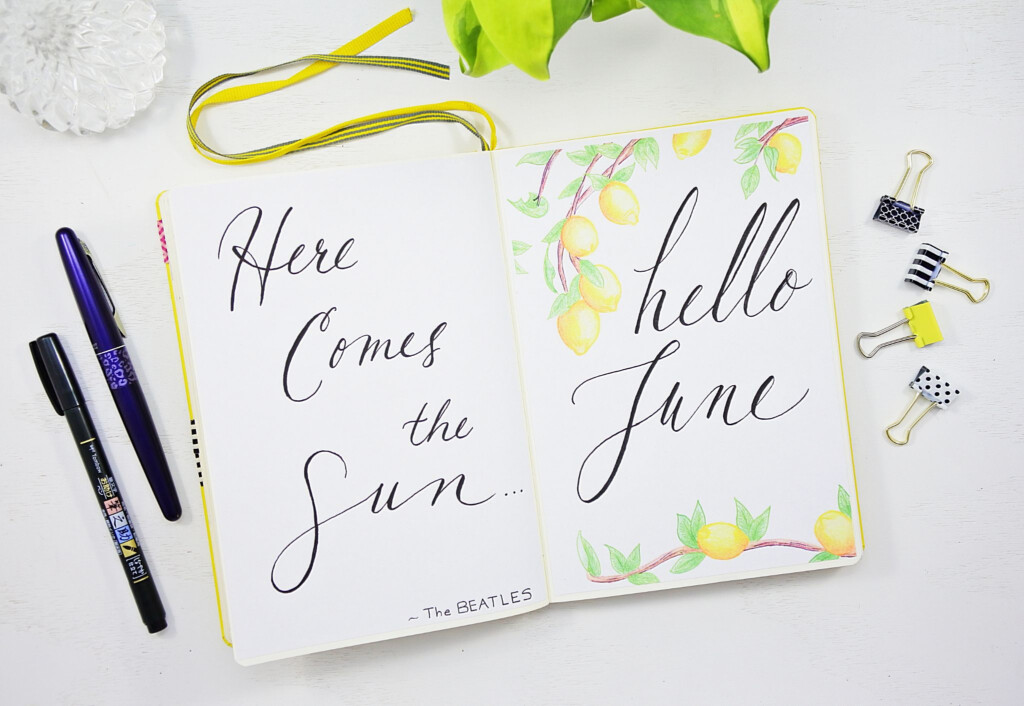 Here
Comes
the
Sun...
~ The BEATLES
hello
June